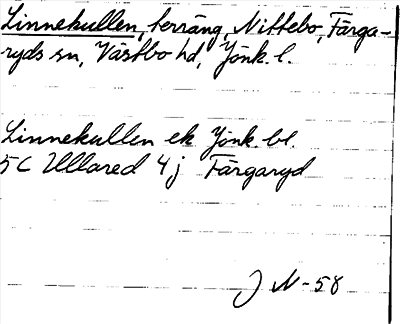 Linnekullen, terräng, Nittebo, Färga-
ryds sn, Västbo hd, Jönk. l.
Linnekullen ek Jönk. bl.
5C Ullared 4j Färgaryd
J N-58